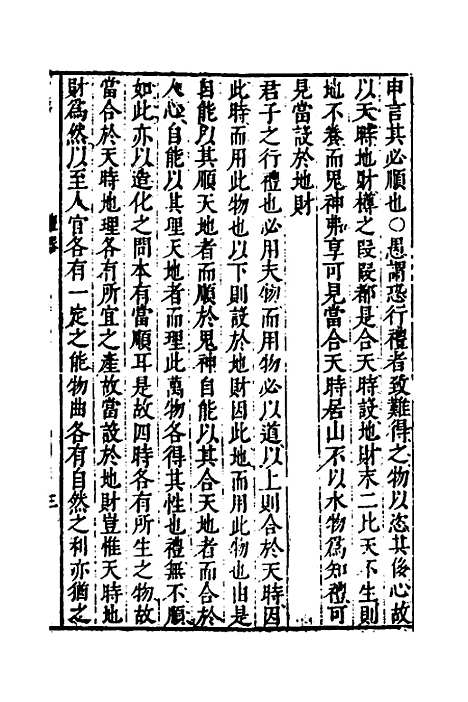 申言其必順也○愚謂恐行禮者致難得之物以恣其後心故
以天時地財樽之段段都是合天時設地財末二比天不生則
地不養而鬼神弗享可見當合天時居山不以水物為知禮可
見當設於地財
君子之行禮也必用夫物而用物必以道以上則合於天時因
此時而用此物也以下則設於地財因此地而用此物也由是
自能以其順天地者而順於鬼神自能以其合天地者而合於
人心自能以其理天地者而理此萬物各得其性也禮無不順
如此亦以造化之間本有當順耳是故四時各有所生之物故
當合於天時地理各有所宜之產故當設於地財豈惟天時地
財為然以至人官各有一定之能物曲各有自然之利亦猶之